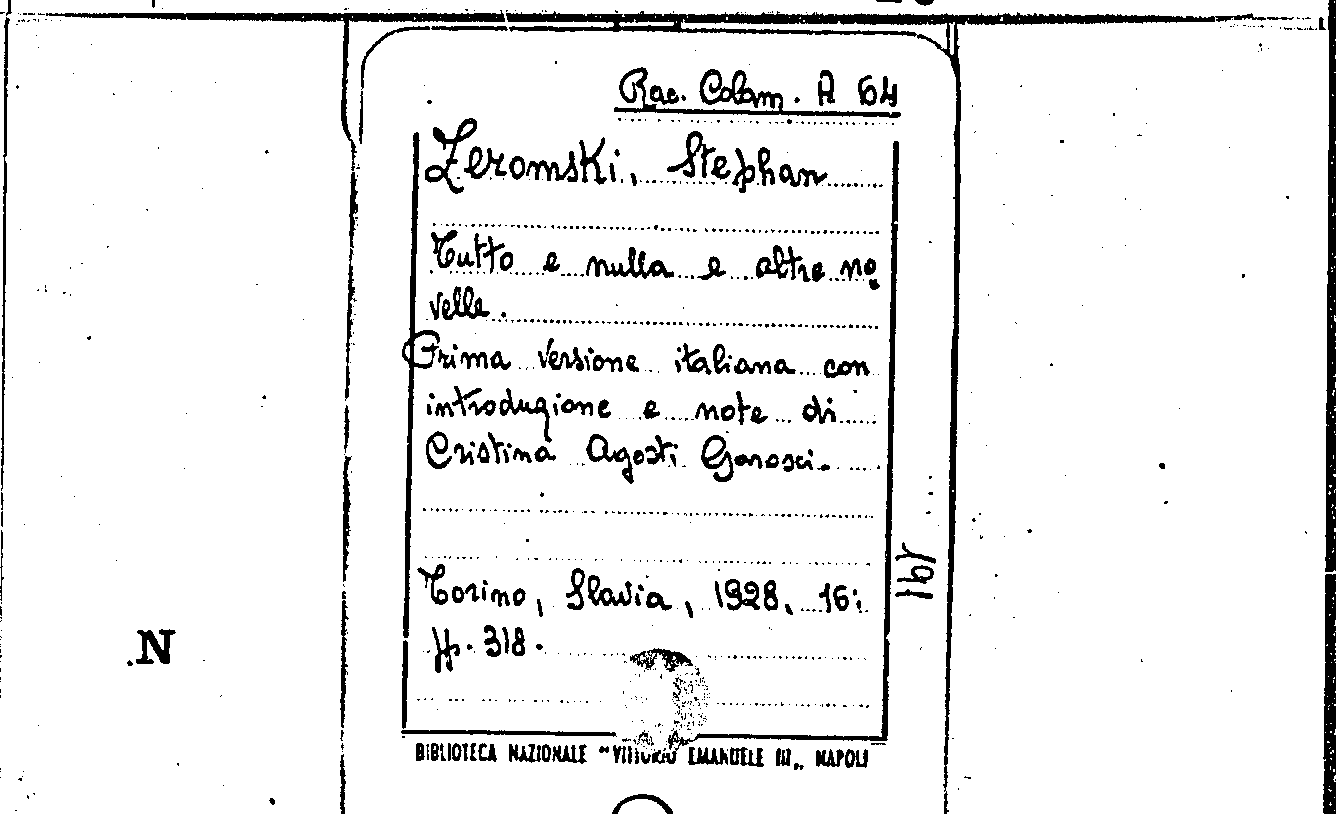 Rac. Colam. A 64
Zeromski, Stephan
Tutto e nulla e altre no
velle.
Prima versione italiana con
introduzione e note di
Cristina Agosti Garosci.
Torino, Slavia, 1928. 16°
pp. 318.
N
BIBLIOTECA NAZIONALE "VITTORIO EMANUELE III„ NAPOLI